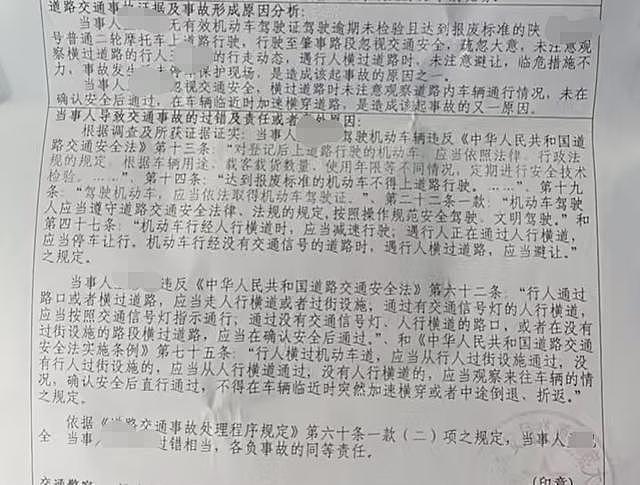 道路交通事故证据及事故形成原因分析:
当事人 无有效机动车驾驶证驾驶逾期未检验且达到报废标准的陕
号普通二轮摩托车上道路行驶,行驶至肇事路段忽视交通安全,疏忽大意,未注意观
察横过道路的行人 的行走动态,遇行人横过道路时,未注意避让,临危措施不
力,事故发生 未停车保护现场,是造成该起事故的原因之一。
当事人 忽视交通安全,横过道路时未注意观察道路内车辆通行情况,未在
确认安全后通过,在车辆临近时加速横穿道路,是造成该起事故的又一原因。
当事人导致交通事故的过错及责任或者意外原因:
根据调查及所获证据证实:当事人 驾驶机动车辆违反《中华人民共和国道
路交通安全法》第十三条:“对登记后上道路行驶的机动车,应当依照法律、行政法
规的规定,根据车辆用途、载客载货数量、使用年限等不同情况,定期进行安全技术
检验。……”、第十四条:“达到报废标准的机动车不得上道路行驶。……”、第十九
条:“驾驶机动车,应当依法取得机动车驾驶证。”、第二十二条一款:“机动车驾驶
人应当遵守道路交通安全法律、法规的规定,按照操作规范安全驾驶、文明驾驶。”和
第四十七条:“机动车行经人行横道时,应当减速行驶;遇行人正在通过人行横道,
应当停车让行。机动车行经没有交通信号的道路时,遇行人横过道路,应当避让。”
之规定。
当事人 违反《中华人民共和国道路交通安全法》第六十二条:“行人通过
路口或者横过道路,应当走人行横道或者过街设施;通过有交通信号灯的人行横道,
应当按照交通信号灯指示通行;通过没有交通信号灯、人行横道的路口,或者在没有
过街设施的路段横过道路,应当在确认安全后通过。”、和《中华人民共和国道路交通
安全法实施条例》第七十五条:“行人横过机动车道,应当从行人过街设施通过,没
有行人过街设施的,应当从人行横道通过,没有人行横道的,应当观察来往车辆的情
况,确认安全后直行通过,不得在车辆临近时突然加速横穿或者中途倒退、折返。”
之规定。
依据《道路交通事故处理程序规定》第六十条一款(二)项之规定,当事人 
全 当事人 过错相当,各负事故的同等责任。
交通警察
(印章)